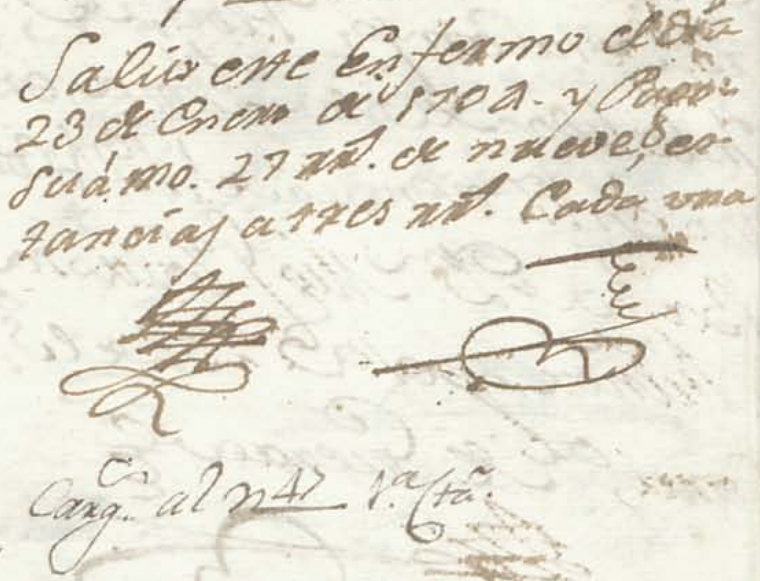 Salio este Enfermo el dia
23 de Enero de 1704. y Pago
su ámo. 27 rr^s. de nueve, es-
tancias a tres rr^s. Cada una
Carg^n. al n 47 1^a C^ta.